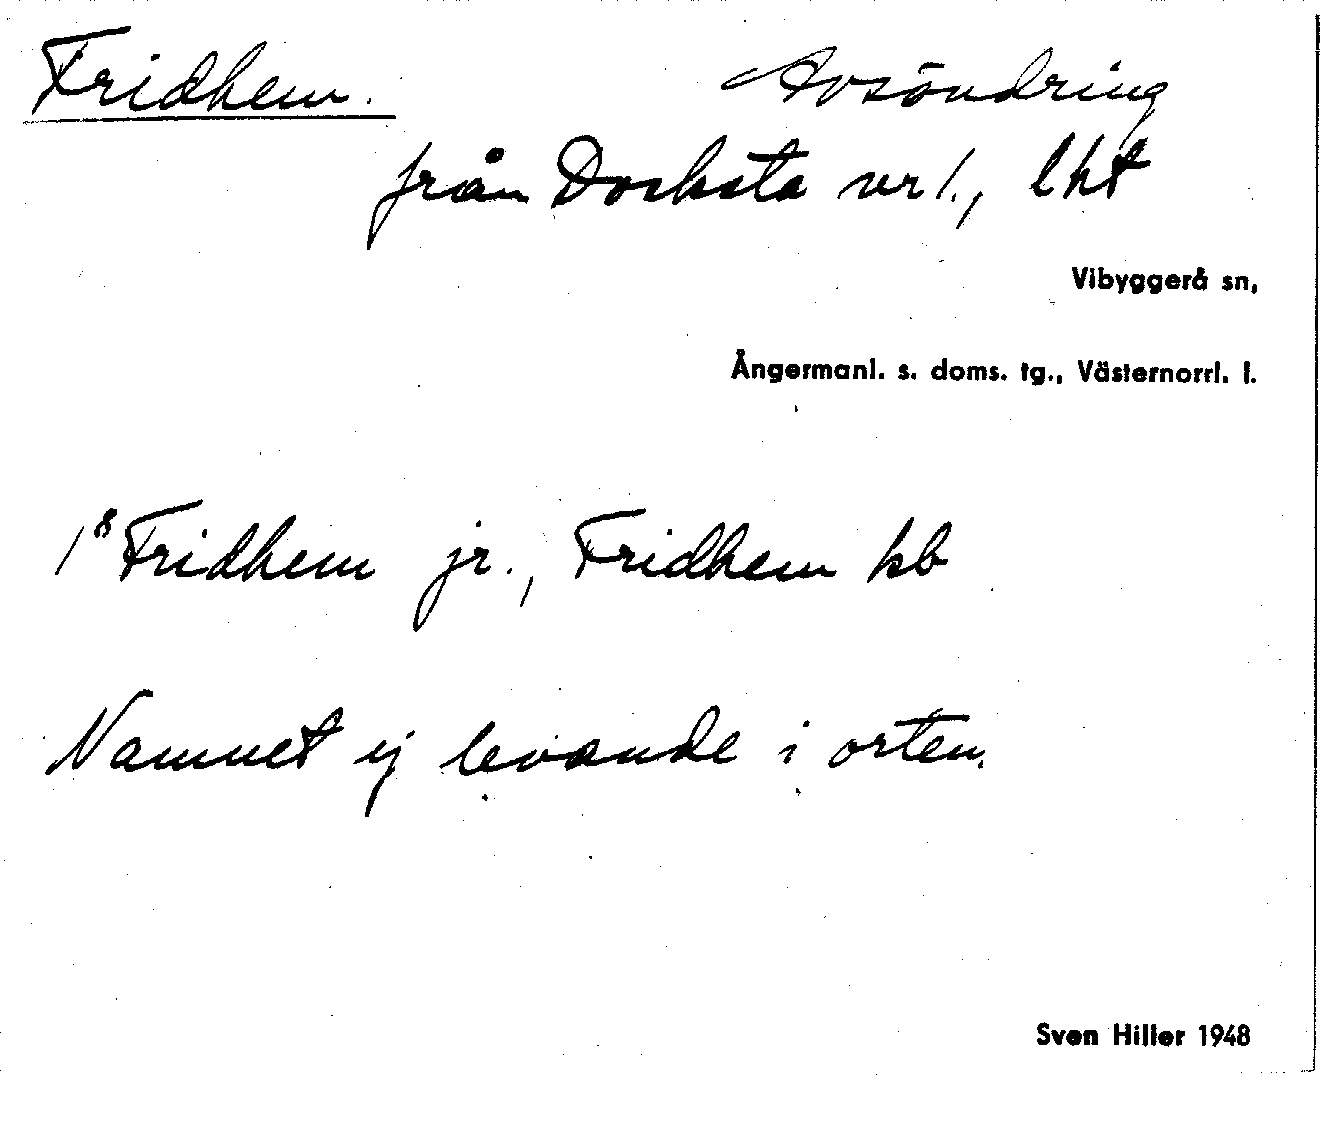 Fridhem. Avsöndring
från Docksta nr 1., lht
Vibyggerå sn,
Ångermanl. s. doms. tg., Västernorrl. l.
1⁸ Fridhem jr., Fridhem kb
Namnet ej levande i orten.
Sven Hiller 1948